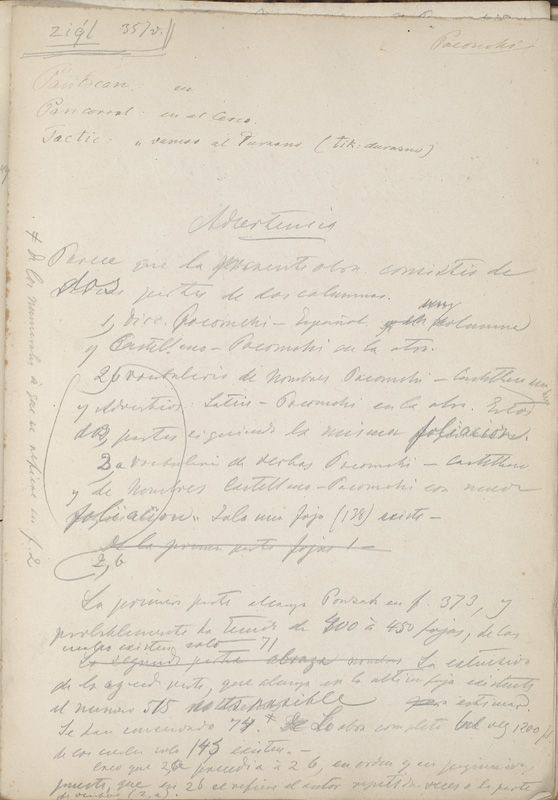 ziql 35/v.
Poconchi
Pantocan: en
Pan corral: en el Cerco.
Tactic: vamos al Durasno (tik: durasno)
Advertencia
Parece que la presente obra consistia de
dos partes de dos columnas.
1, Dicc. Pocomchi – Español columna
y Castellano – Pocomchi en la otra.
2 b vocabulario de Nombres Pocomchi – Castellano
y Adverbios Latin – Pocomchi en la otra. Estas
dos partes siguiendo la misma foliacion.
2 a vocabulario de verbos Pocomchi – Castellano
y de Nombres Castellano – Pocomchi con nueva
foliation. Solo una foja (128) existe –
de la primera parte fojas 1 –
2, b
+ de los numerales á que se refiere en f. 2
La primera parte alcanza en f. 373, y
probablemente ha tenido de 400 á 450 fojas, de las
cuales existen solo 71
La segunda parte abraza nombres La extension
de la segunda parte, que alcanza en la ultima foja existente
el numero 515 no es posible estimar.
Se han conservado 74 + La obra completa tal vez 1200 f
de las cuales solo 145 existen. –
Creo que 2a precedia á 2 b, en orden y en
puesto, que en 2b se refiere el autor repetidas veces a la parte
de verbos (2, a).